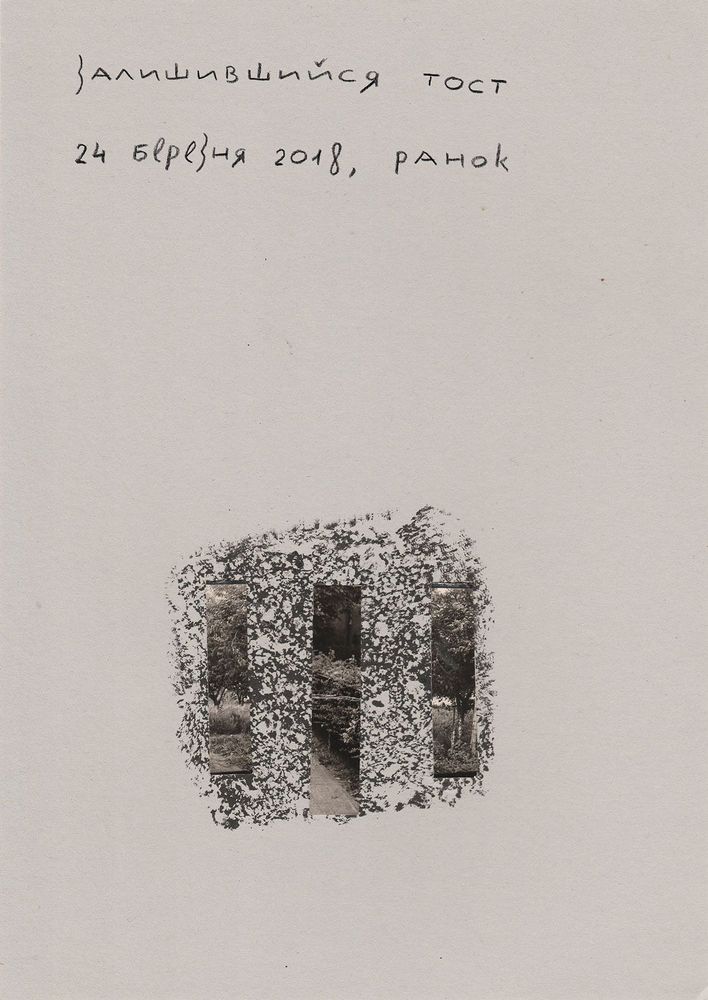 залишившийся тост
24 березня 2018, ранок